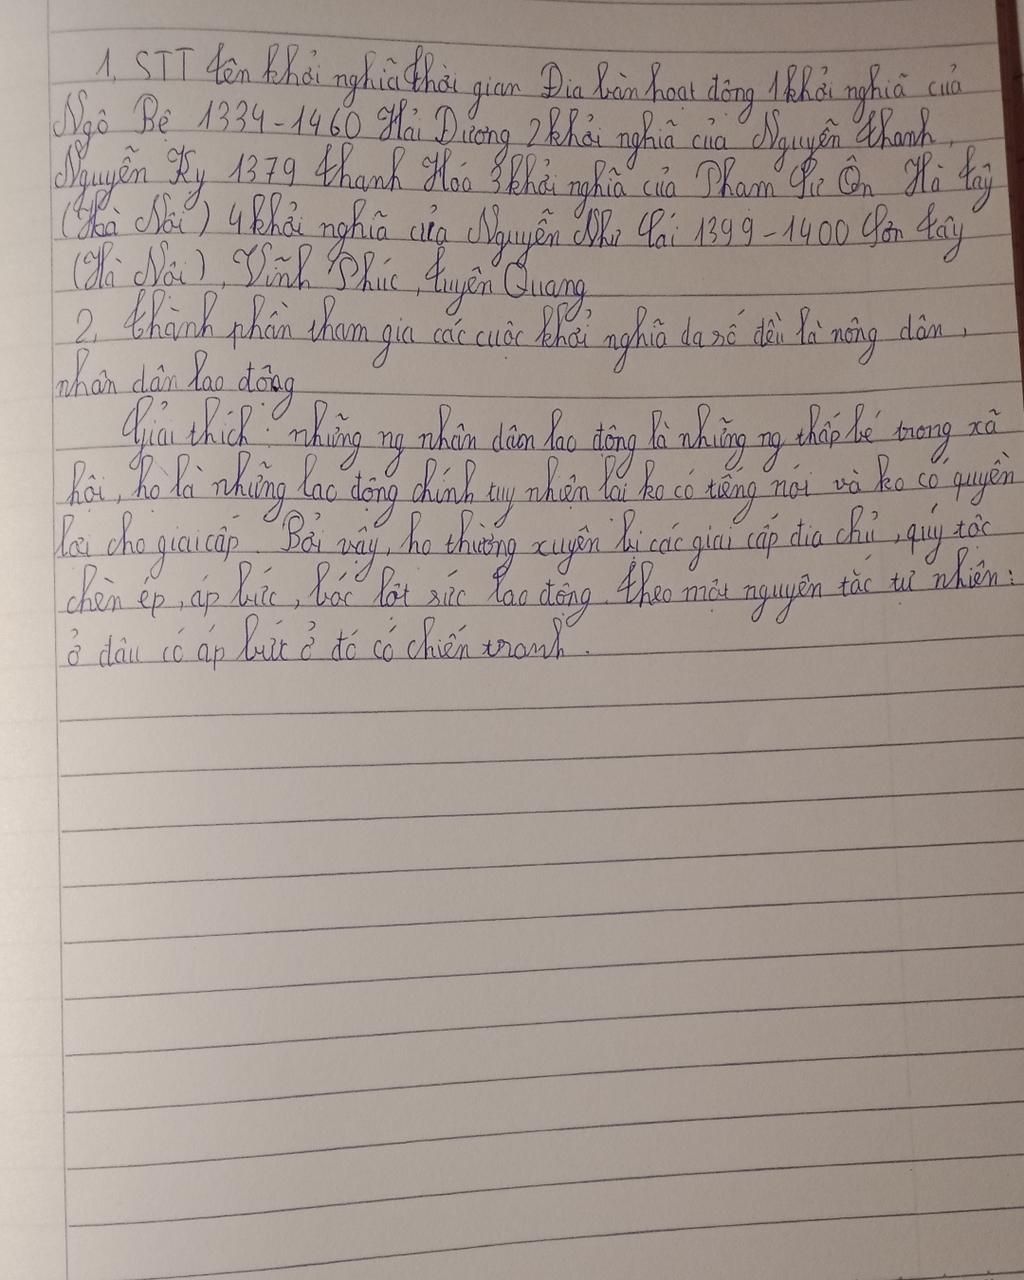 1, STT tên khởi nghĩa thời gian Địa bàn hoạt động 1 khởi nghĩa của
Ngô Bệ 1334-1460 Hải Dương 2 khởi nghĩa của Nguyễn Thanh,
Nguyễn Kỵ 1379 Thanh Hoá 3 khởi nghĩa của Phạm Sư Ôn Hà Tây
(Hà Nội) 4 khởi nghĩa của Nguyễn Như Cái 1399-1400 Sơn Tây
(Hà Nội), Vĩnh Phúc, Tuyên Quang
2, Thành phần tham gia các cuộc khởi nghĩa đa số đều là nông dân,
nhân dân lao động
Giải thích: những ng nhân dân lao động là những ng thấp bé trong xã
hội, họ là những lao động chính tuy nhiên lại ko có tiếng nói và ko có quyền
lợi cho giai cấp. Bởi vậy, họ thường xuyên bị các giai cấp địa chủ, quý tộc
chèn ép, áp bức, bóc lột sức lao động. Theo một nguyên tắc tự nhiên:
ở đâu có áp bức ở đó có chiến tranh.